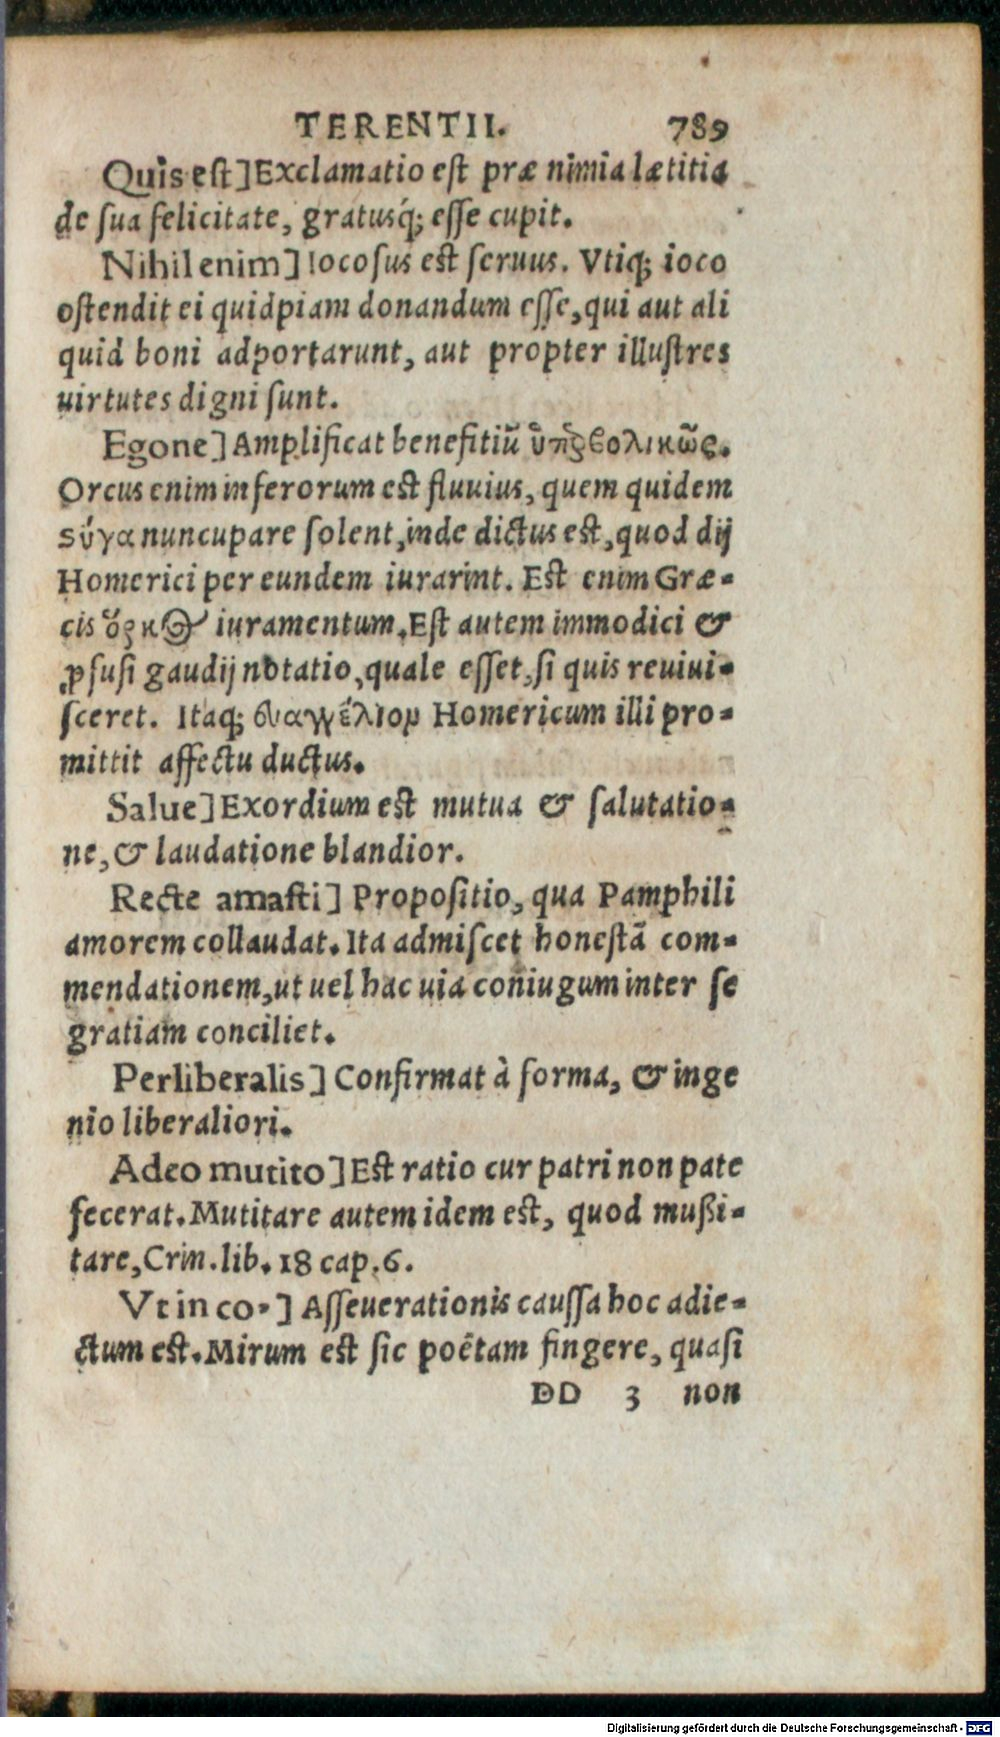 TERENTII. 789
Quis est] Exclamatio est præ nimia lætitia
de sua felicitate, gratusq́; esse cupit.
Nihil enim] Iocosus est seruus. Vtiq; ioco
ostendit ei quidpiam donandum esse, qui aut ali
quid boni adportarunt, aut propter illustres
uirtutes digni sunt.
Egone] Amplificat benefitiũ ὑπὲρβολικῶς.
Orcus enim inferorum est fluuius, quem quidem
σύγα nuncupare solent, inde dictus est, quod dij
Homerici per eundem iurarint. Est enim Græ-
cis ὅρκος iuramentum. Est autem immodici &
ꝓfusi gaudij notatio, quale esset, si quis reuiui-
sceret. Itaq; ἐυαγγέλιον Homericum illi pro-
mittit affectu ductus.
Salue] Exordium est mutua & salutatio-
ne, & laudatione blandior.
Recte amasti] Propositio, qua Pamphili
amorem collaudat. Ita admiscet honestã com-
mendationem, ut uel hac uia coniugum inter se
gratiam conciliet.
Perliberalis] Confirmat à forma, & inge
nio liberaliori.
Adeo mutito] Est ratio cur patri non pate
fecerat. Mutitare autem idem est, quod mußi-
tare, Crin. lib. 18 cap. 6.
Vt in co.] Asseuerationis caussa hoc adie-
ctum est. Mirum est sic poëtam fingere, quasi
DD 3 non
Digitalisierung gefördert durch die Deutsche Forschungsgemeinschaft - DFG